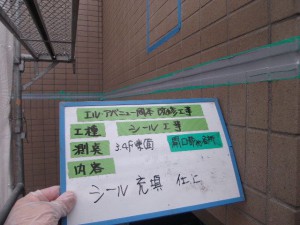 エル・アベニュー岡本 改修工事
工種 シール工事
測点 3.4F東面
内容
シール充填 仕上